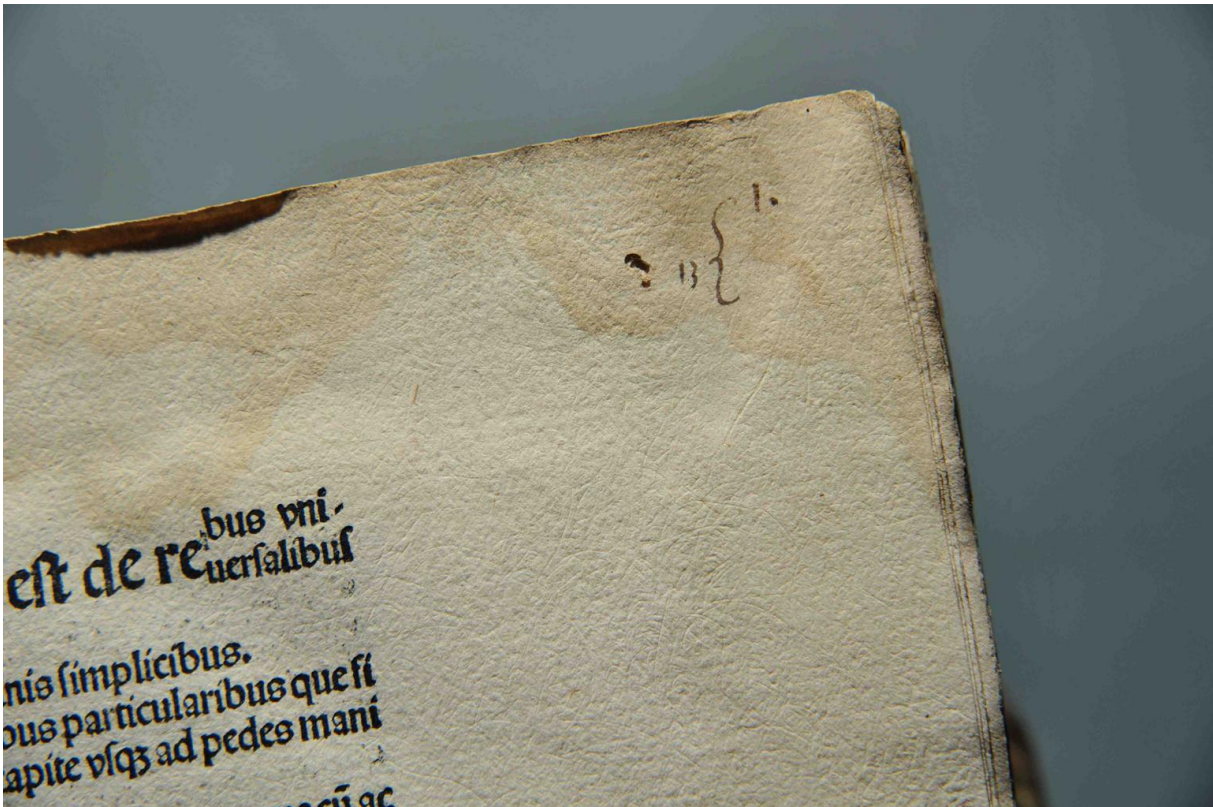 1.
13 {
est de re bus vni-
uersalibus
nis simplicibus.
bus particularibus que si
apite vsqꝫ ad pedes mani
cū ac